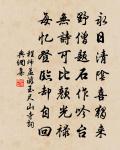 永日清陰喜獨來
野僧題石作吟臺
無詩可比顏光祿
每憶登臨却自回
程師孟遊玉尺山寺詞
典調集